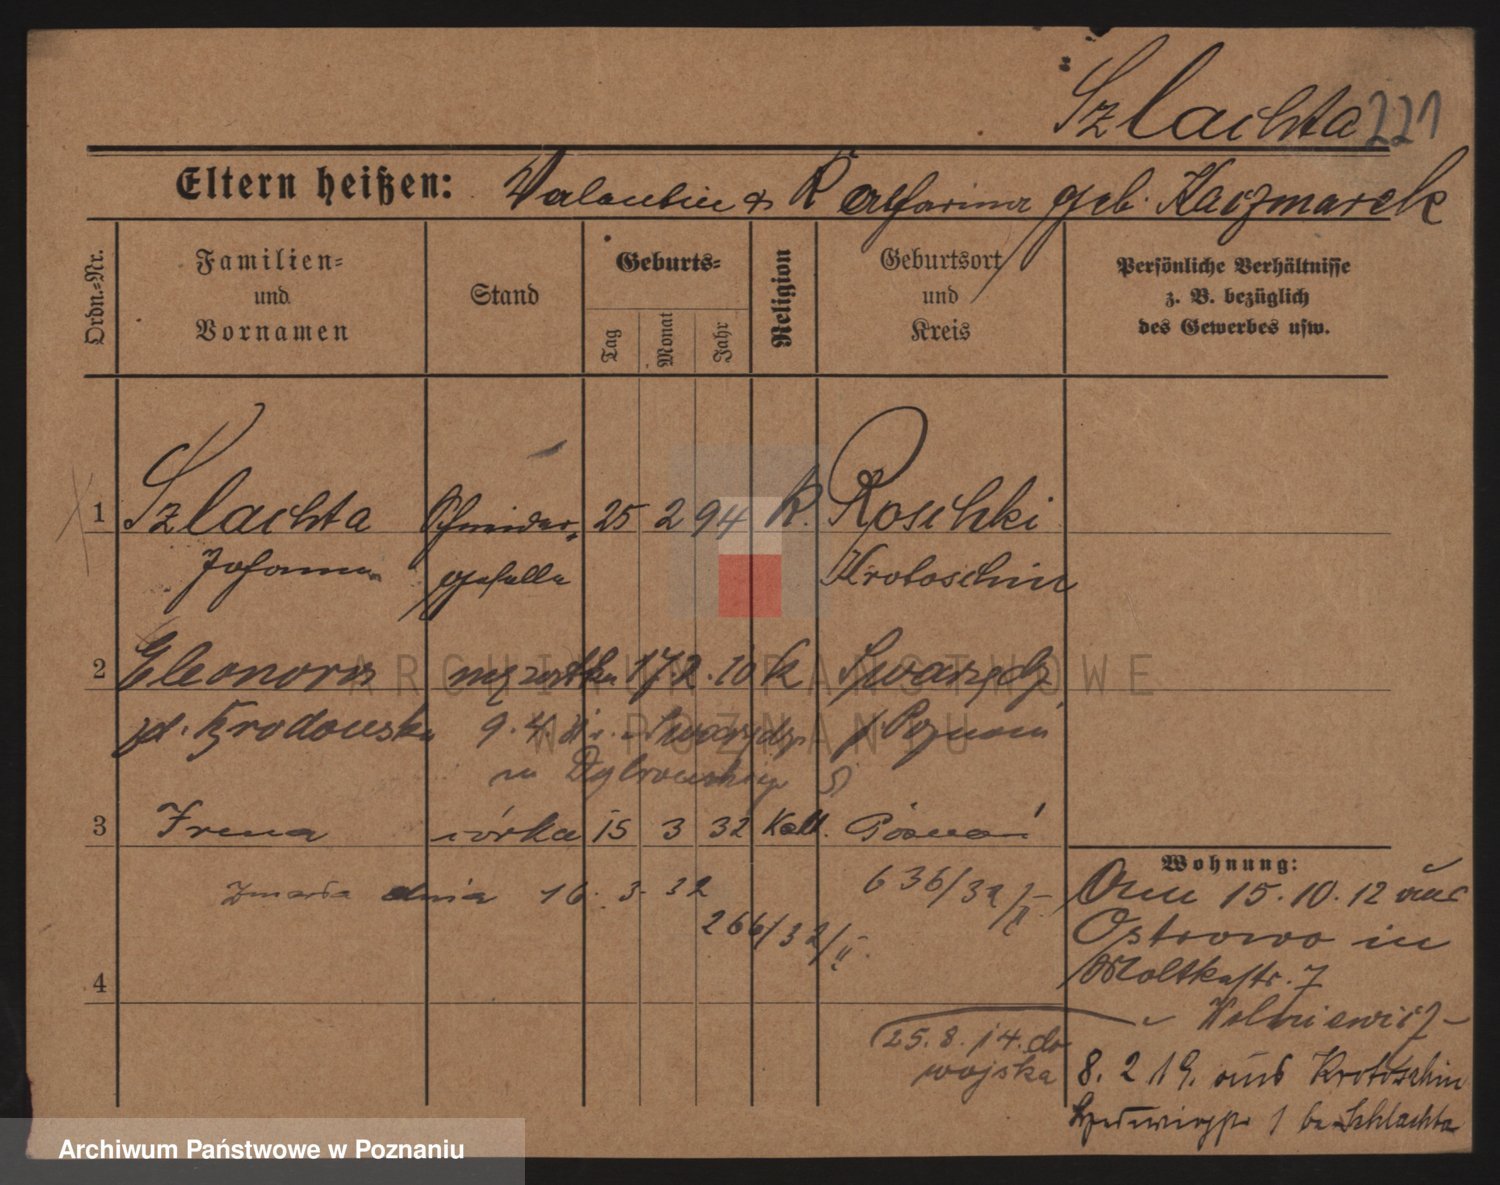 Szlachta 221
Eltern heißen: Valentin & Katharina geb. Kaczmarek
Ordn.-Nr.
Familien- und Vornamen
Stand
Geburts-
Tag Monat Jahr
Religion
Geburtsort und Kreis
Persönliche Verhältnisse z. B. bezüglich des Gewerbes usw.
1 Szlachta Schneider- 25 2 94 K. Roschki
Johann geselle Krotoschin
2 Eleonora mężatka 17 2. 10 K Swarzędz
9. 4. w Swarzędzu p. Poznań
3 Irena córka 15 3 32 Kath. Poznań
Zmarła dnia 16. 3. 32
636/32/II
266/32/II.
4
Wohnung:
Am 15. 10. 12 aus
Ostrowo in
Moltkestr. 7
25. 8. 14. do
wojska
8. 2 19. aus Krotoschin
1 be Schlachta
ARCHIWUM PAŃSTWOWE
W POZNANIU
Archiwum Państwowe w Poznaniu